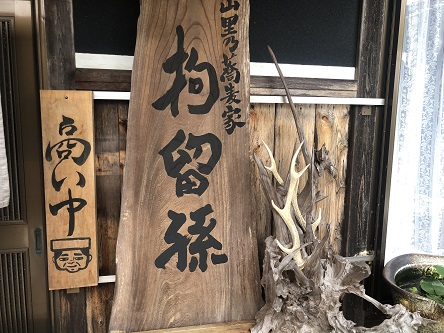 山里乃蕎麦家
拘留孫
商い中